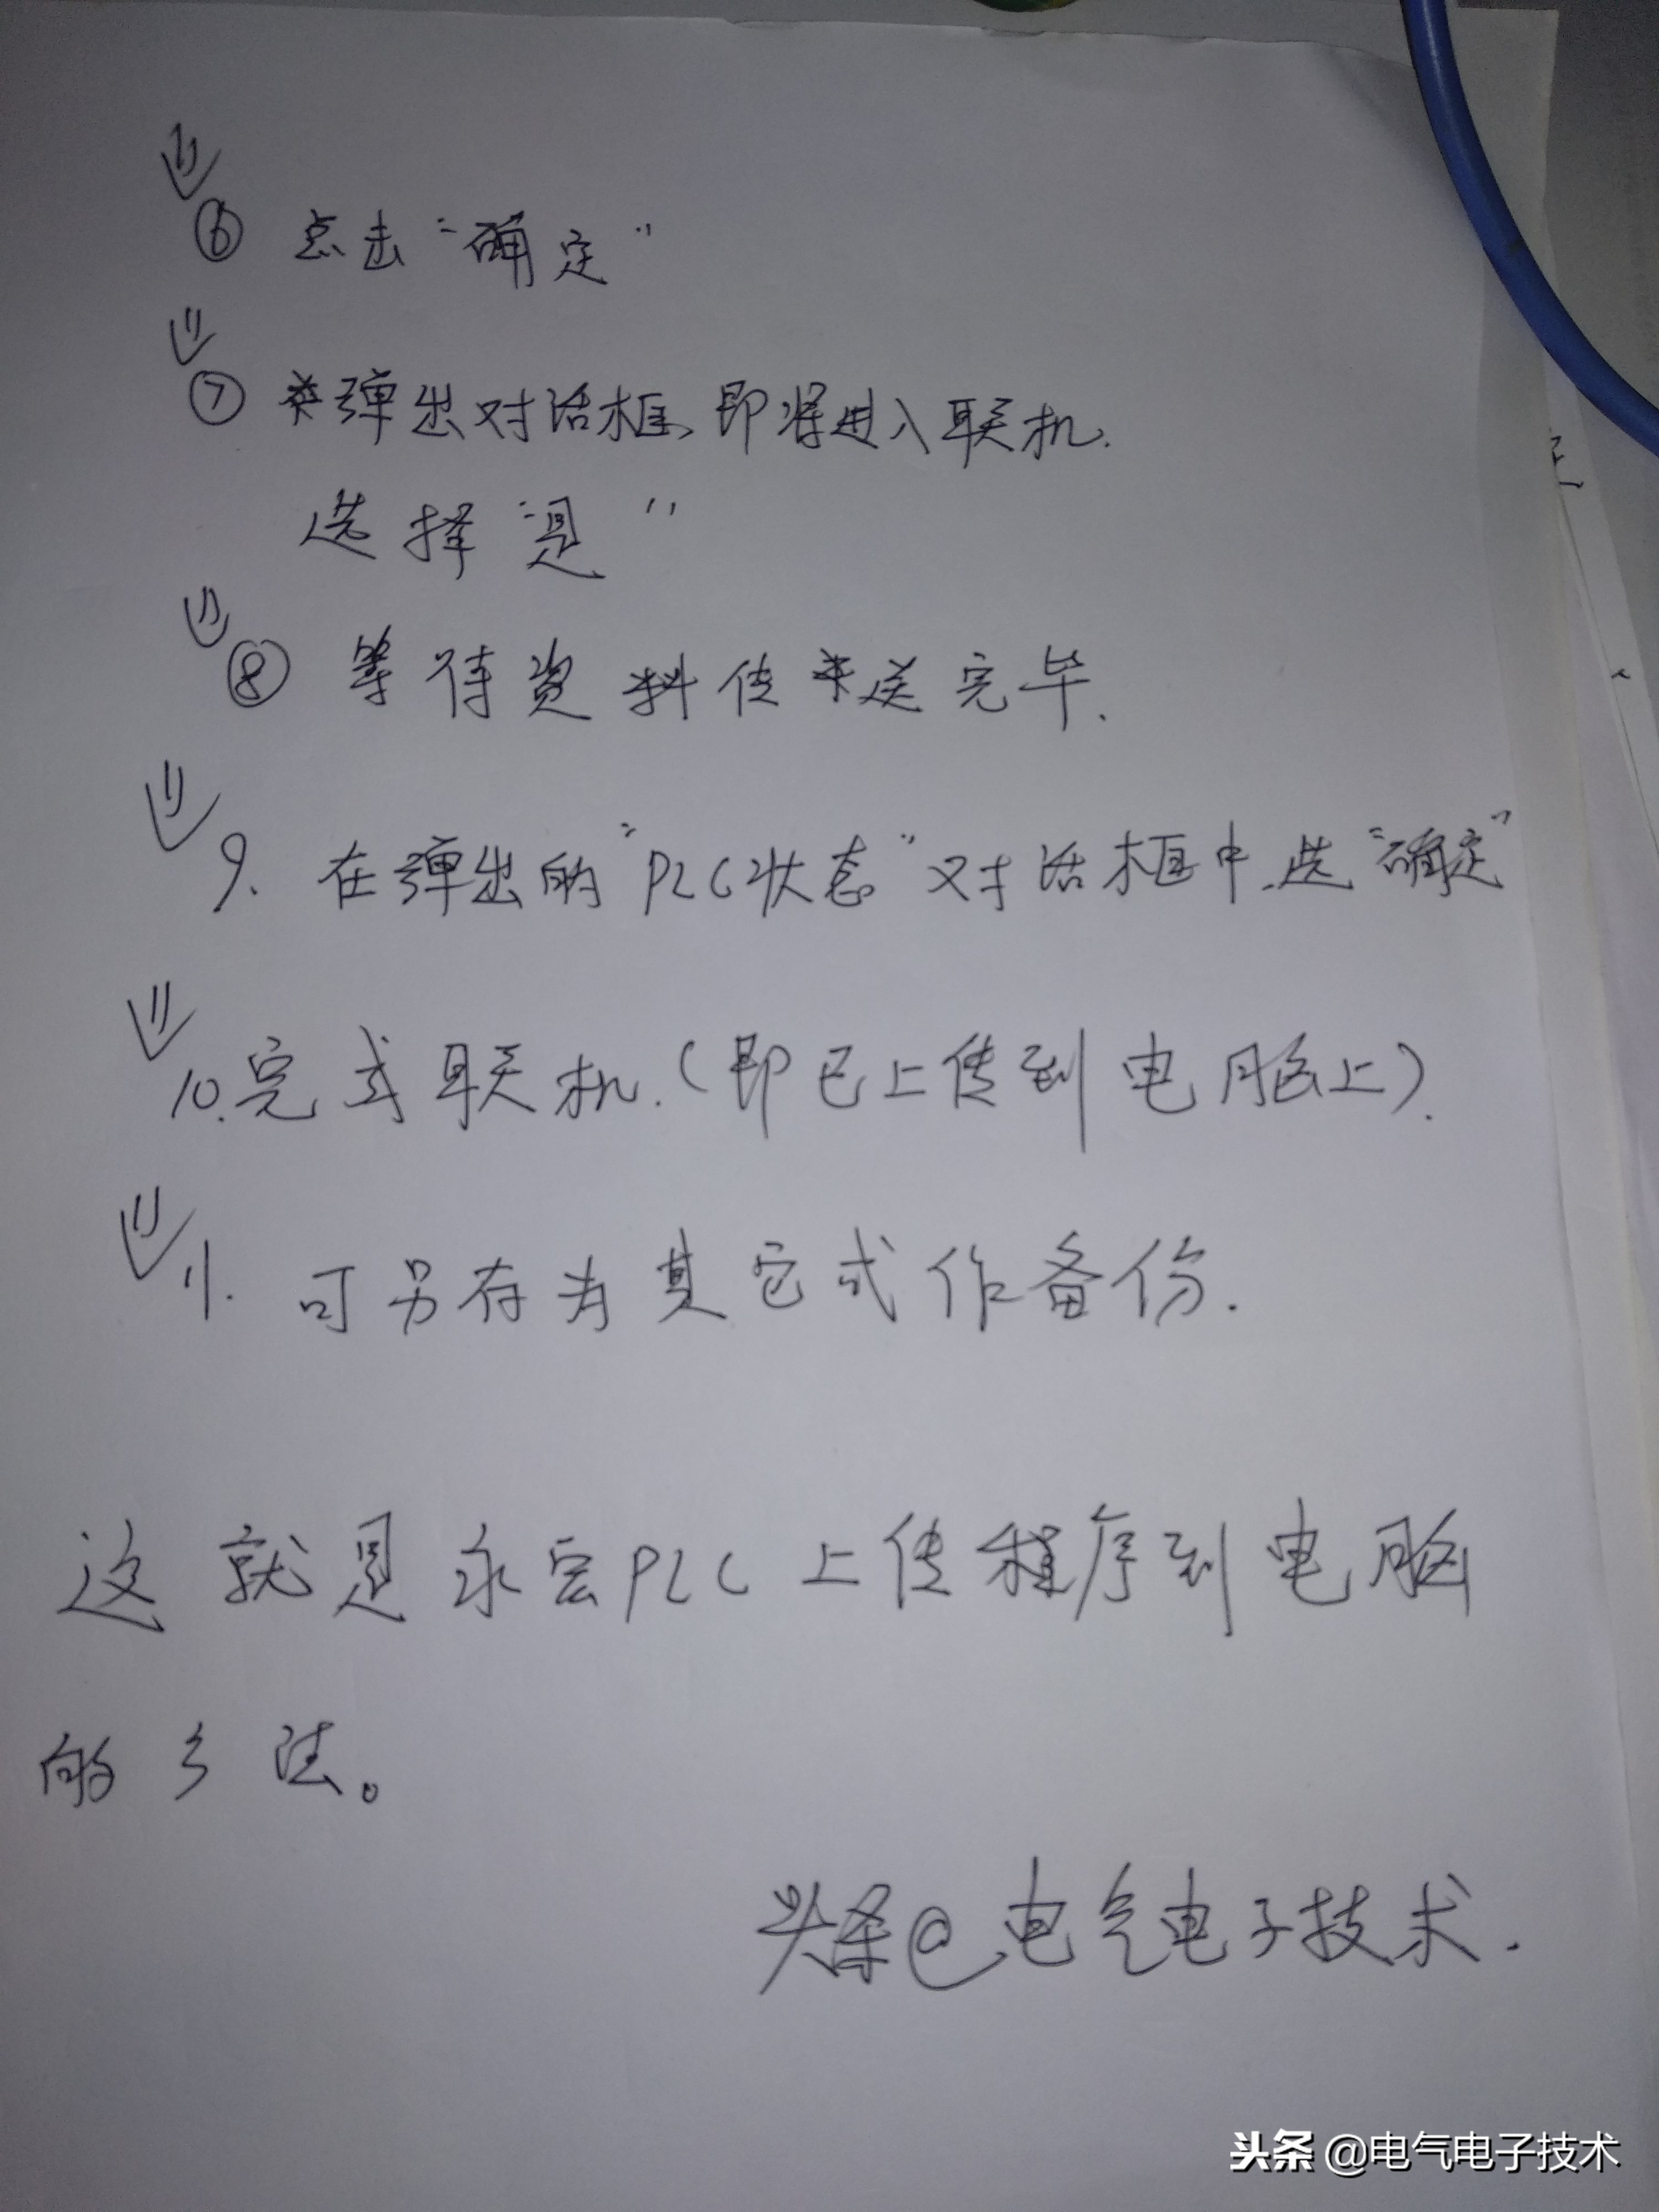 ⑥ 点击“确定”
⑦ 弹出对话框,即将进入联机.
选择“是”
⑧ 等待资料传送完毕.
9. 在弹出的“PLC状态”对话框中,选“确定”
10.完成联机.(即已上传到电脑上).
11. 可另存为其它式作备份.
这就是永宏PLC上传程序到电脑
的方法。
头条@电气电子技术.
头条 @电气电子技术